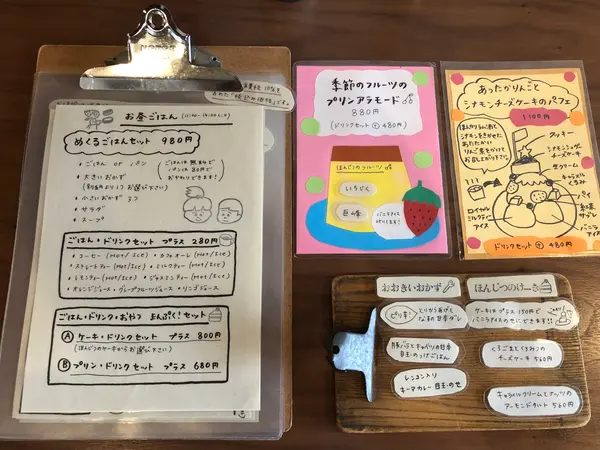 お昼ごはん
めぐるごはんセット 980円
・ごはん or パン
・大きいおかず
・小さいおかず 3つ
・サラダ
・スープ
ごはん・ドリンクセット プラス 280円
・コーヒー (HOT/ICE) ・カフェオーレ (HOT/ICE)
・ストレートティー (HOT/ICE) ・ミルクティー (HOT/ICE)
・レモンティー (HOT/ICE) ・ジャスミンティー (HOT/ICE)
・オレンジジュース・グレープフルーツジュース・リンゴジュース
ごはん・ドリンク・おやつ まんぷく!セット
Ⓐ ケーキ・ドリンクセット プラス 800円
(ほんじつのケーキからお選び下さい)
Ⓑ プリン・ドリンクセット プラス 680円
季節のフルーツの
プリンアラモード
880円
(ドリンクセット ⊕ 480円)
ほんじつのフルーツ
いちじく
巨峰
あったかりんごと
シナモンチーズケーキのパフェ
1100円
クッキー
シナモンチーズケーキ
生クリーム
キャラメル
くるみ
パイ
バニラ
アイス
ロイヤル
ミルクティー
アイス
ドリンクセット ⊕ 480円
おおきいおかず
ピリ辛!
とりから揚げと
なすの甘辛ダレ
豚バラとキャベツの甘辛
目玉のっけごはん
レンコン入り
キーマカレー 目玉のせ
ほんじつのけーき
ケーキはプラス 150円で
バニラアイスのせにできます!!
くろごまとくるみの
チーズケーキ 560円
キャラメルクリームとナッツの
アーモンドタルト 560円